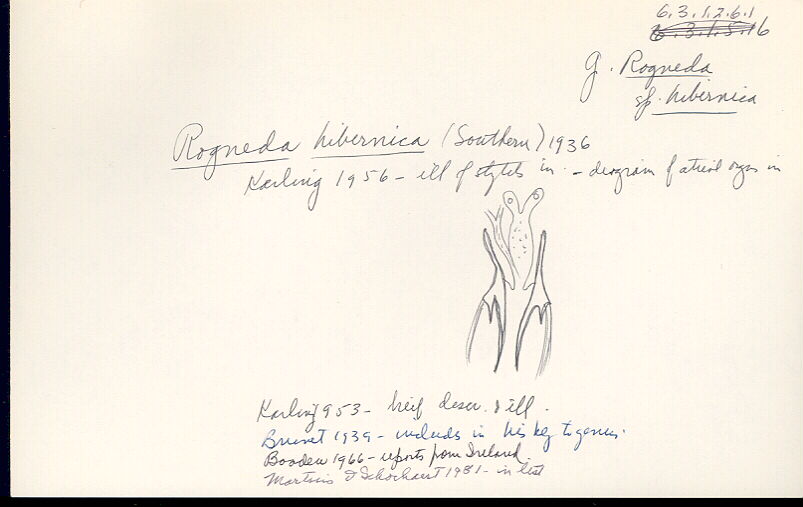 6.3.1.2.6.1
6.3.1.5.16
g. Rogneda
sp. hibernica
Rogneda hibernica (Southern) 1936
Karling 1956 - ill of stylets in - diagram of atrial orgs in
Karling 1953 - brief descr. & ill.
Brunet 1939 - includes in his key to genus.
Boaden 1966 - reports from Ireland
Martens & Schockaert 1981 - in list